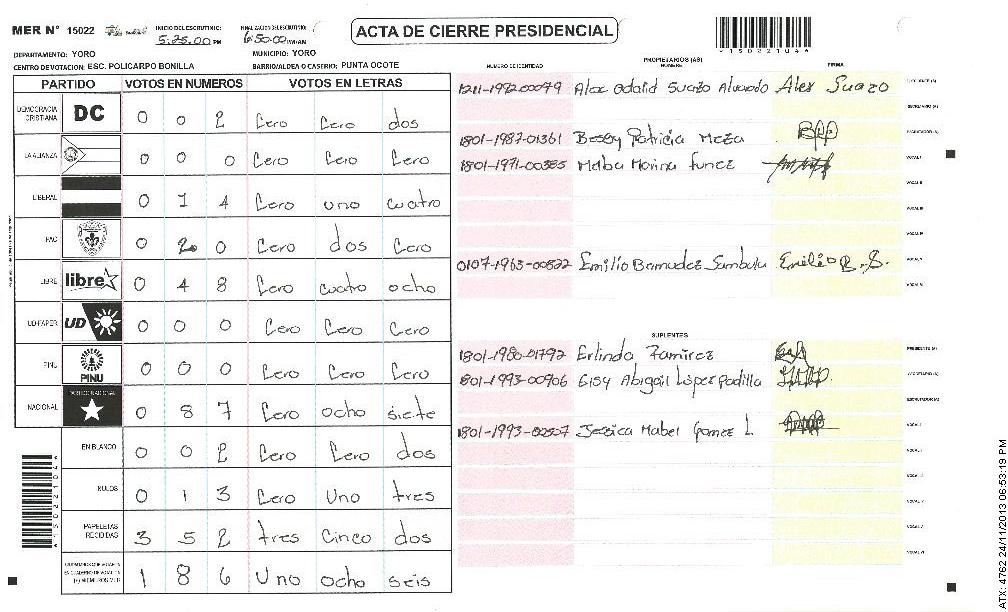 MER N° 15022
INICIO DEL ESCRUTINIO: 5:25:00 PM
FINALIZACION DEL ESCRUTINIO: 6:50:00 PM/AM
ACTA DE CIERRE PRESIDENCIAL
DEPARTAMENTO: YORO
MUNICIPIO: YORO
CENTRO DE VOTACION: ESC. POLICARPO BONILLA
BARRIO/ALDEA O CASERIO: PUNTA OCOTE
PARTIDO VOTOS EN NUMEROS VOTOS EN LETRAS
DEMOCRACIA CRISTIANA DC 0 0 2 Cero Cero dos
LA ALIANZA 0 0 0 Cero Cero Cero
LIBERAL 0 1 4 Cero uno cuatro
PAC 0 2 0 Cero dos Cero
LIBRE libre 0 4 8 Cero cuatro ocho
UD-FAPER UD 0 0 0 Cero Cero Cero
PINU PINU 0 0 0 Cero Cero Cero
NACIONAL PARTIDO NACIONAL 0 8 7 Cero ocho siete
EN BLANCO 0 0 2 Cero Cero dos
NULOS 0 1 3 Cero Uno tres
PAPELETAS RECIBIDAS 3 5 2 tres Cinco dos
1 8 6 Uno ocho seis
NUMERO DE IDENTIDAD PROPIETARIOS (AS) NOMBRE FIRMA
1211-1992-00079 Alex Odalid Suazo Alvarado Alex Suazo
PRESIDENTE (A)
SECRETARIO (A)
1801-1987-01361 Bessy Patricia Meza
ESCRUTADOR (A)
1801-1971-00385 Melba Marina Funez
VOCAL I
VOCAL II
VOCAL III
VOCAL IV
0107-1963-00822 Emilio Bermudez Sambula Emilio B. S.
VOCAL V
VOCAL VI
SUPLENTES
1801-1980-01792 Erlinda Ramirez
PRESIDENTE (A)
1801-1993-00906 Eisy Abigail López Padilla
SECRETARIO (A)
ESCRUTADOR (A)
1801-1993-00507 Jessica Mabel Gomez L.
VOCAL I
ATX: 4762 24/11/2013 06:53:19 PM